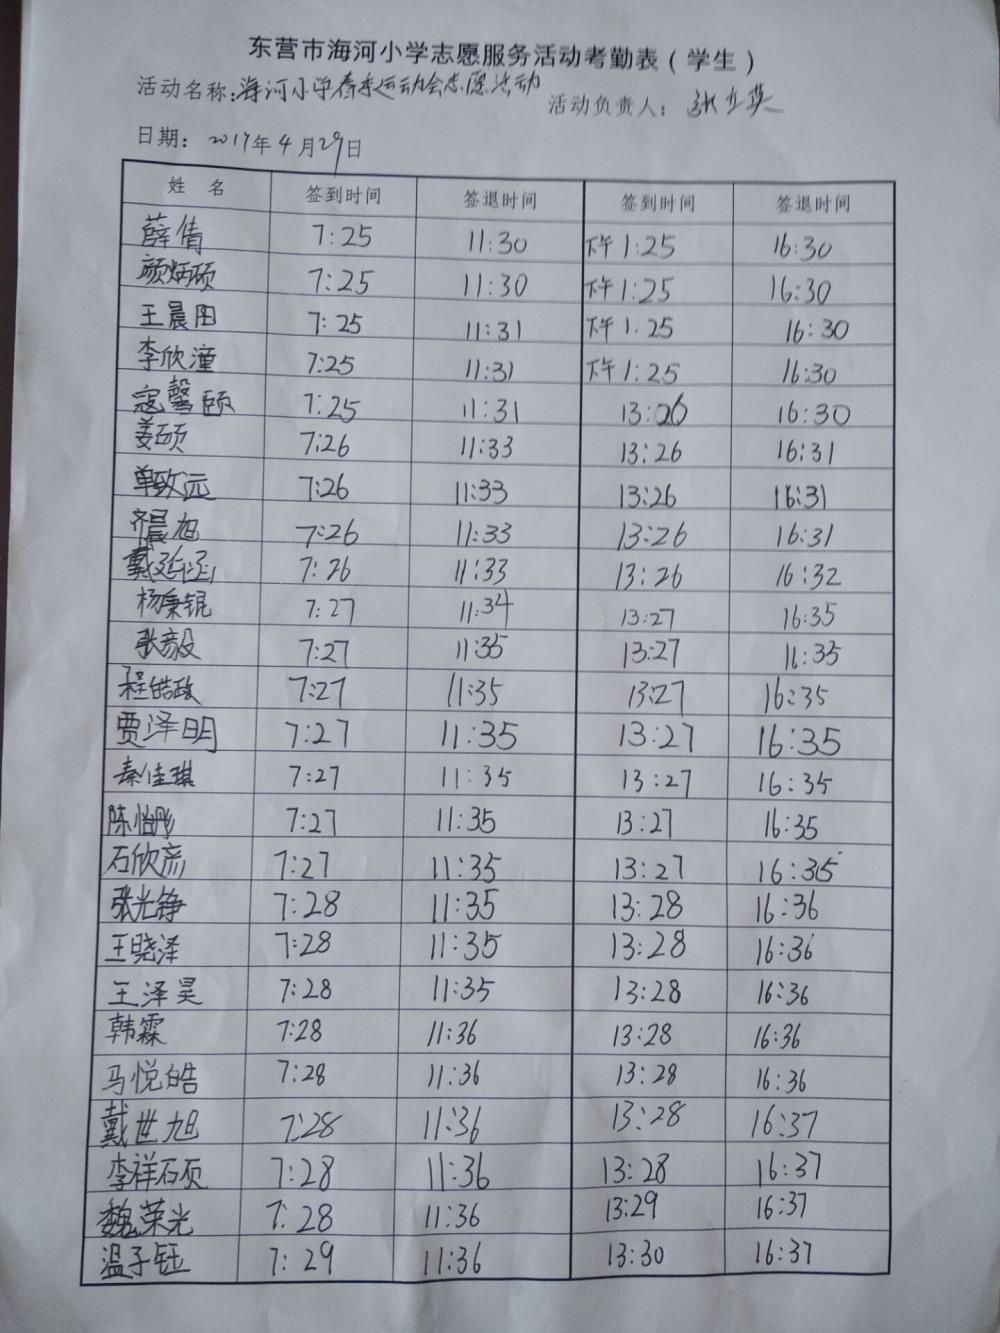 东营市海河小学志愿服务活动考勤表（学生）
活动名称：海河小学春季运动会志愿活动 活动负责人：张立英
日期：2017年4月29日
姓名 签到时间 签退时间 签到时间 签退时间
薛倩 7:25 11:30 下午1:25 16:30
颜炳硕 7:25 11:30 下午1:25 16:30
王晨阳 7:25 11:31 下午1.25 16:30
李欣潼 7:25 11:31 下午1:25 16:30
寇馨颐 7:25 11:31 13:26 16:30
姜硕 7:26 11:33 13:26 16:31
单致远 7:26 11:33 13:26 16:31
齐晨旭 7:26 11:33 13:26 16:31
戴延函 7:26 11:33 13:26 16:32
杨秉锟 7:27 11:34 13:27 16:35
张彦殷 7:27 11:35 13:27 16:35
程皓政 7:27 11:35 13:27 16:35
贾泽明 7:27 11:35 13:27 16:35
秦佳琪 7:27 11:35 13:27 16:35
陈怡彤 7:27 11:35 13:27 16:35
石欣彦 7:27 11:35 13:27 16:35
张光铮 7:28 11:35 13:28 16:36
王晓泽 7:28 11:35 13:28 16:36
王泽昊 7:28 11:35 13:28 16:36
韩霖 7:28 11:36 13:28 16:36
马悦皓 7:28 11:36 13:28 16:36
戴世旭 7:28 11:36 13:28 16:37
李祥硕 7:28 11:36 13:28 16:37
魏荣光 7:28 11:36 13:29 16:37
温子钰 7:29 11:36 13:30 16:37